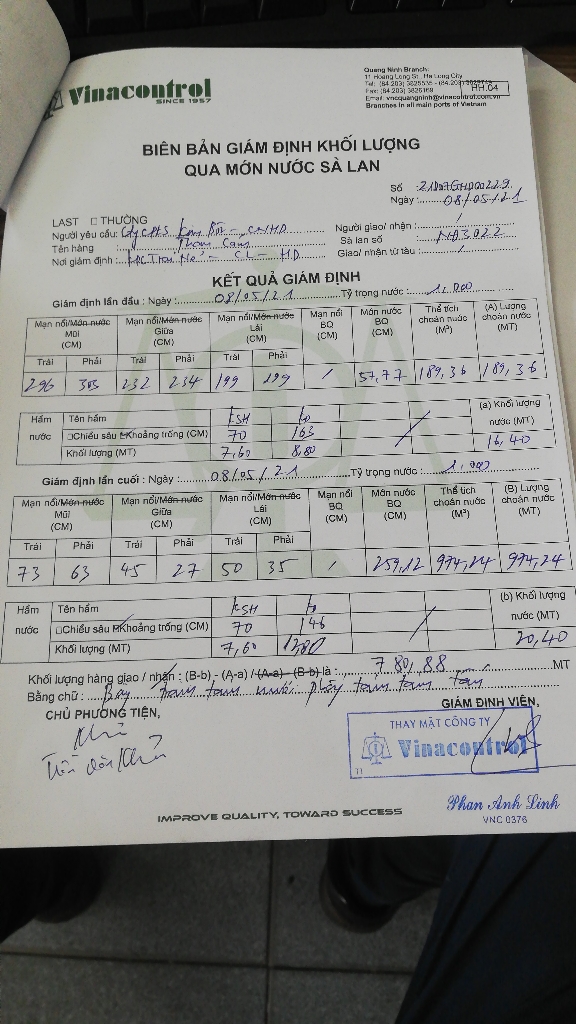 Vinacontrol
SINCE 1957
Quang Ninh Branch:
11 Hoang Long St., Ha Long City
Fax: (84.203) 3826169
HH.04
Email: vncquangninh@vinacontrol.com.vn
Branches in all main ports of Vietnam
BIÊN BẢN GIÁM ĐỊNH KHỐI LƯỢNG
QUA MỚN NƯỚC SÀ LAN
Số
Ngày: 08/05/21
LAST □ THƯỜNG
Người yêu cầu:
Người giao/ nhận : /
Tên hàng : Than Cám
Sà lan số : NB3022
Nơi giám định :
Giao/ nhận từ tàu : /
KẾT QUẢ GIÁM ĐỊNH
Giám định lần đầu : Ngày : 08/05/21 Tỷ trọng nước : 1,000
Mạn nổi/Mớn nước Mũi (CM) Mạn nổi/Mớn nước Giữa (CM) Mạn nổi/Mớn nước Lái (CM) Mạn nổi BQ (CM) Mớn nước BQ (CM) Thể tích choán nước (M³) (A) Lượng choán nước (MT)
Trái Phải Trái Phải Trái Phải
296 305 232 234 199 199 / 57,77 189,36 189,36
Hầm nước Tên hầm (a) Khối lượng nước (MT)
□Chiều sâu □Khoảng trống (CM) 70 163
Khối lượng (MT) 7,60 8,80 16,40
Giám định lần cuối : Ngày : 08/05/21 Tỷ trọng nước : 1,000
Mạn nổi/Mớn nước Mũi (CM) Mạn nổi/Mớn nước Giữa (CM) Mạn nổi/Mớn nước Lái (CM) Mạn nổi BQ (CM) Mớn nước BQ (CM) Thể tích choán nước (M³) (B) Lượng choán nước (MT)
Trái Phải Trái Phải Trái Phải
73 63 45 27 50 35 / 259,12 974,24 974,24
Hầm nước Tên hầm (b) Khối lượng nước (MT)
□Chiều sâu □Khoảng trống (CM) 70 146
Khối lượng (MT) 7,60 12,80 20,40
Khối lượng hàng giao / nhận : (B-b) - (A-a) / (A-a) - (B-b) là : 780,88 MT
Bằng chữ : Bảy trăm tám mươi phẩy tám tám tấn
CHỦ PHƯƠNG TIỆN,
GIÁM ĐỊNH VIÊN,
THAY MẶT CÔNG TY
Vinacontrol
11
Phan Anh Linh
VNC 0376
IMPROVE QUALITY, TOWARD SUCCESS